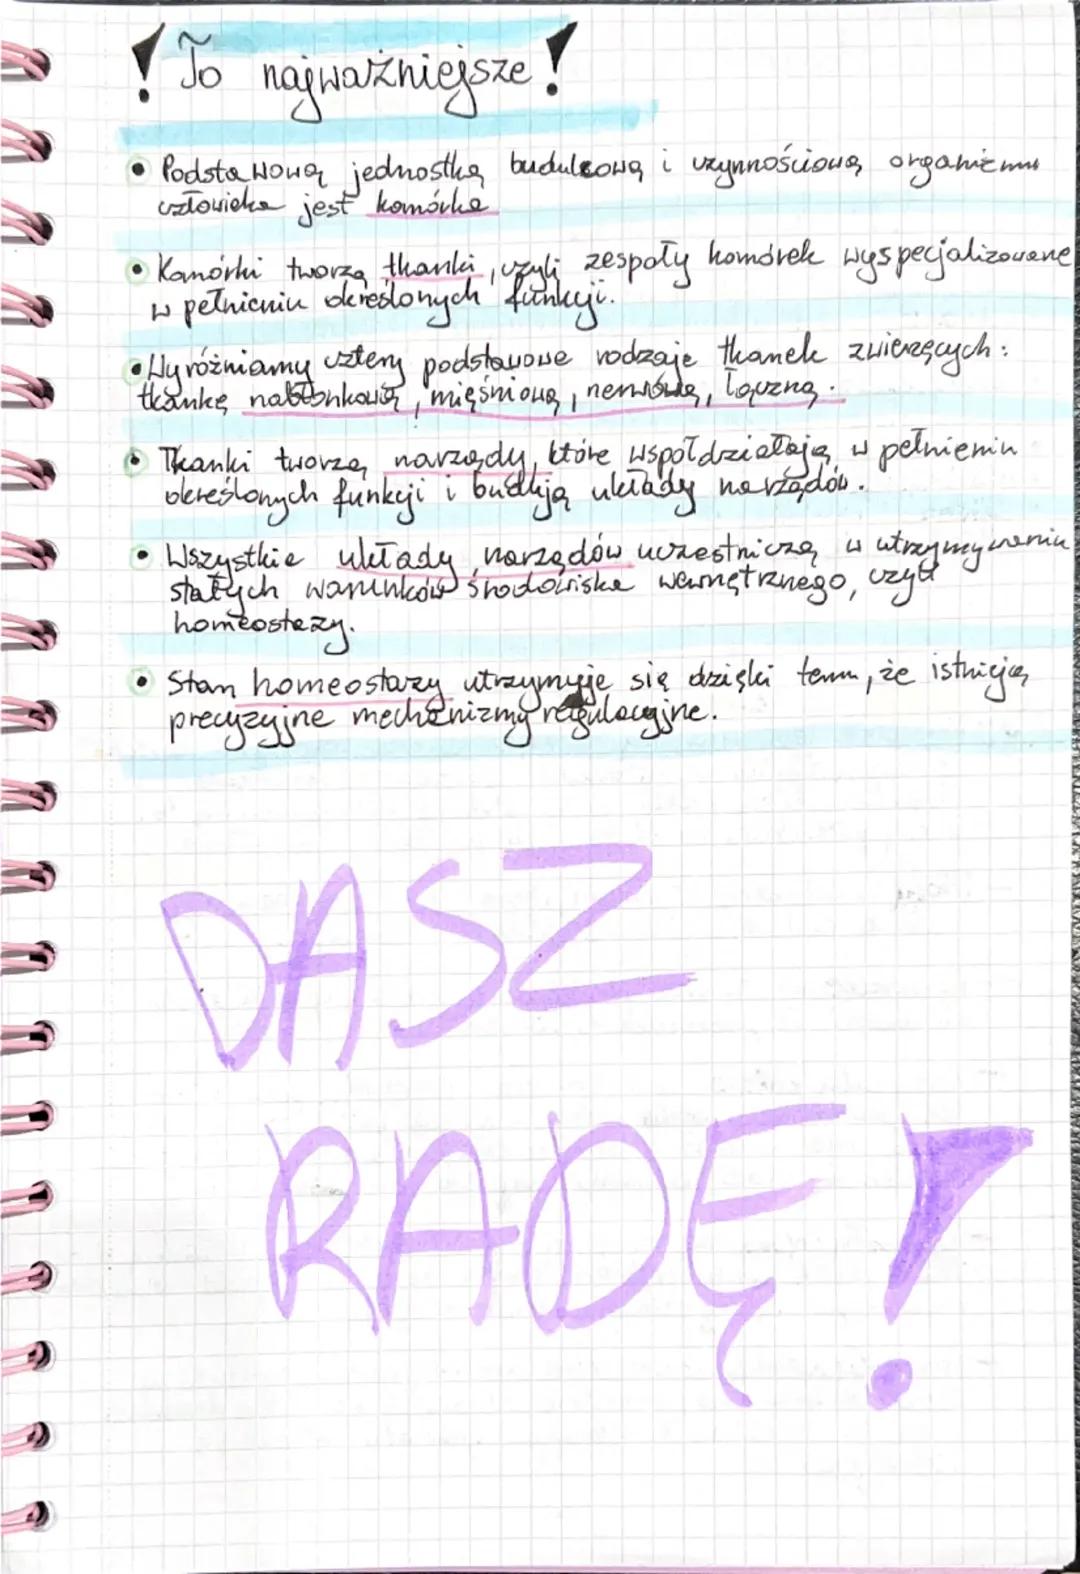 ! To najważniejsze !
• Podstawową jednostką budulcową i czynnościową organizmu
człowieka jest komórka
• Komórki tworzą tkanki, czyli zespoły komórek wyspecjalizowane
w pełnieniu określonych funkcji.
• Wyróżniamy cztery podstawowe rodzaje tkanek zwierzęcych:
tkankę nabłonkową, mięśniową, nerwową, łączną.
• Tkanki tworzą narządy, które współdziałają w pełnieniu
określonych funkcji i budują układy narządów.
• Wszystkie układy narządów uczestniczą w utrzymywaniu
stałych warunków środowiska wewnętrznego, czyli
homeostazy.
• Stan homeostazy utrzymuje się dzięki temu, że istnieją
precyzyjne mechanizmy regulacyjne.
DASZ
RADĘ!